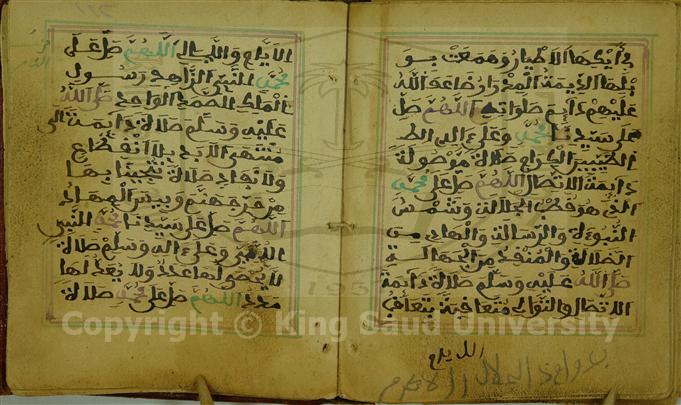 في أيكها الاطيار وهمعت بو
بلها الديمة المدرار ضاعف الله
عليهم دائم صلواته اللهم صل
على سيدنا محمد وعلى اله الط
الطيبين الكرام صلاة موصولة
دائمة الاتصال اللهم صل على محمد
الذي هو قطب الجلالة وشمس
النبوءة والرسالة والهادي من
الضلالة والمنقذ من الجهالة
صلى الله عليه وسلم صلاة دائمة
الاتصال والتوالي متعاقبة بتعاقب
الايام
الايام والليالي اللهم صل على
محمد النبي الزاهد رسول
الملك الصمد الواحد صلى الله
عليه وسلم صلاة دائمة الى
منتهى الابد بلا انقطاع
ولا نفاد صلاة تنجينا بها
من حر جهنم وبيس المهاد
اللهم صل على سيدنا محمد النبي
الامي وعلى اله وسلم صلاة
لا يحصى لها عدد ولا يعد لها
مدد اللهم صل على محمد صلاة
Copyright © King Saud University
1957